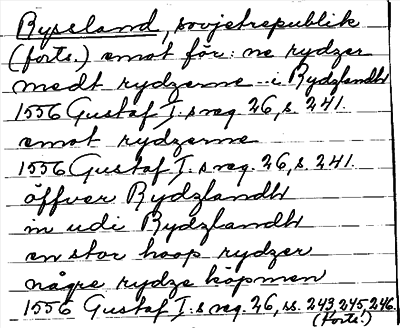 Ryssland, sovjetrepublik
(forts.) emot för: ne rydzer
medt rydzerne - i Rydzlandh
1556 Gustaf I:s reg. 26, s. 241.
emot rydzerne
1556 Gustaf I:s reg. 26, s. 241.
öffver Rydzlandh
in udi Rydzlandh
en stor hoop rydzer
någre rydze köpmen
1556 Gustaf I:s reg. 26, ss. 243, 245, 246.
(Forts.)